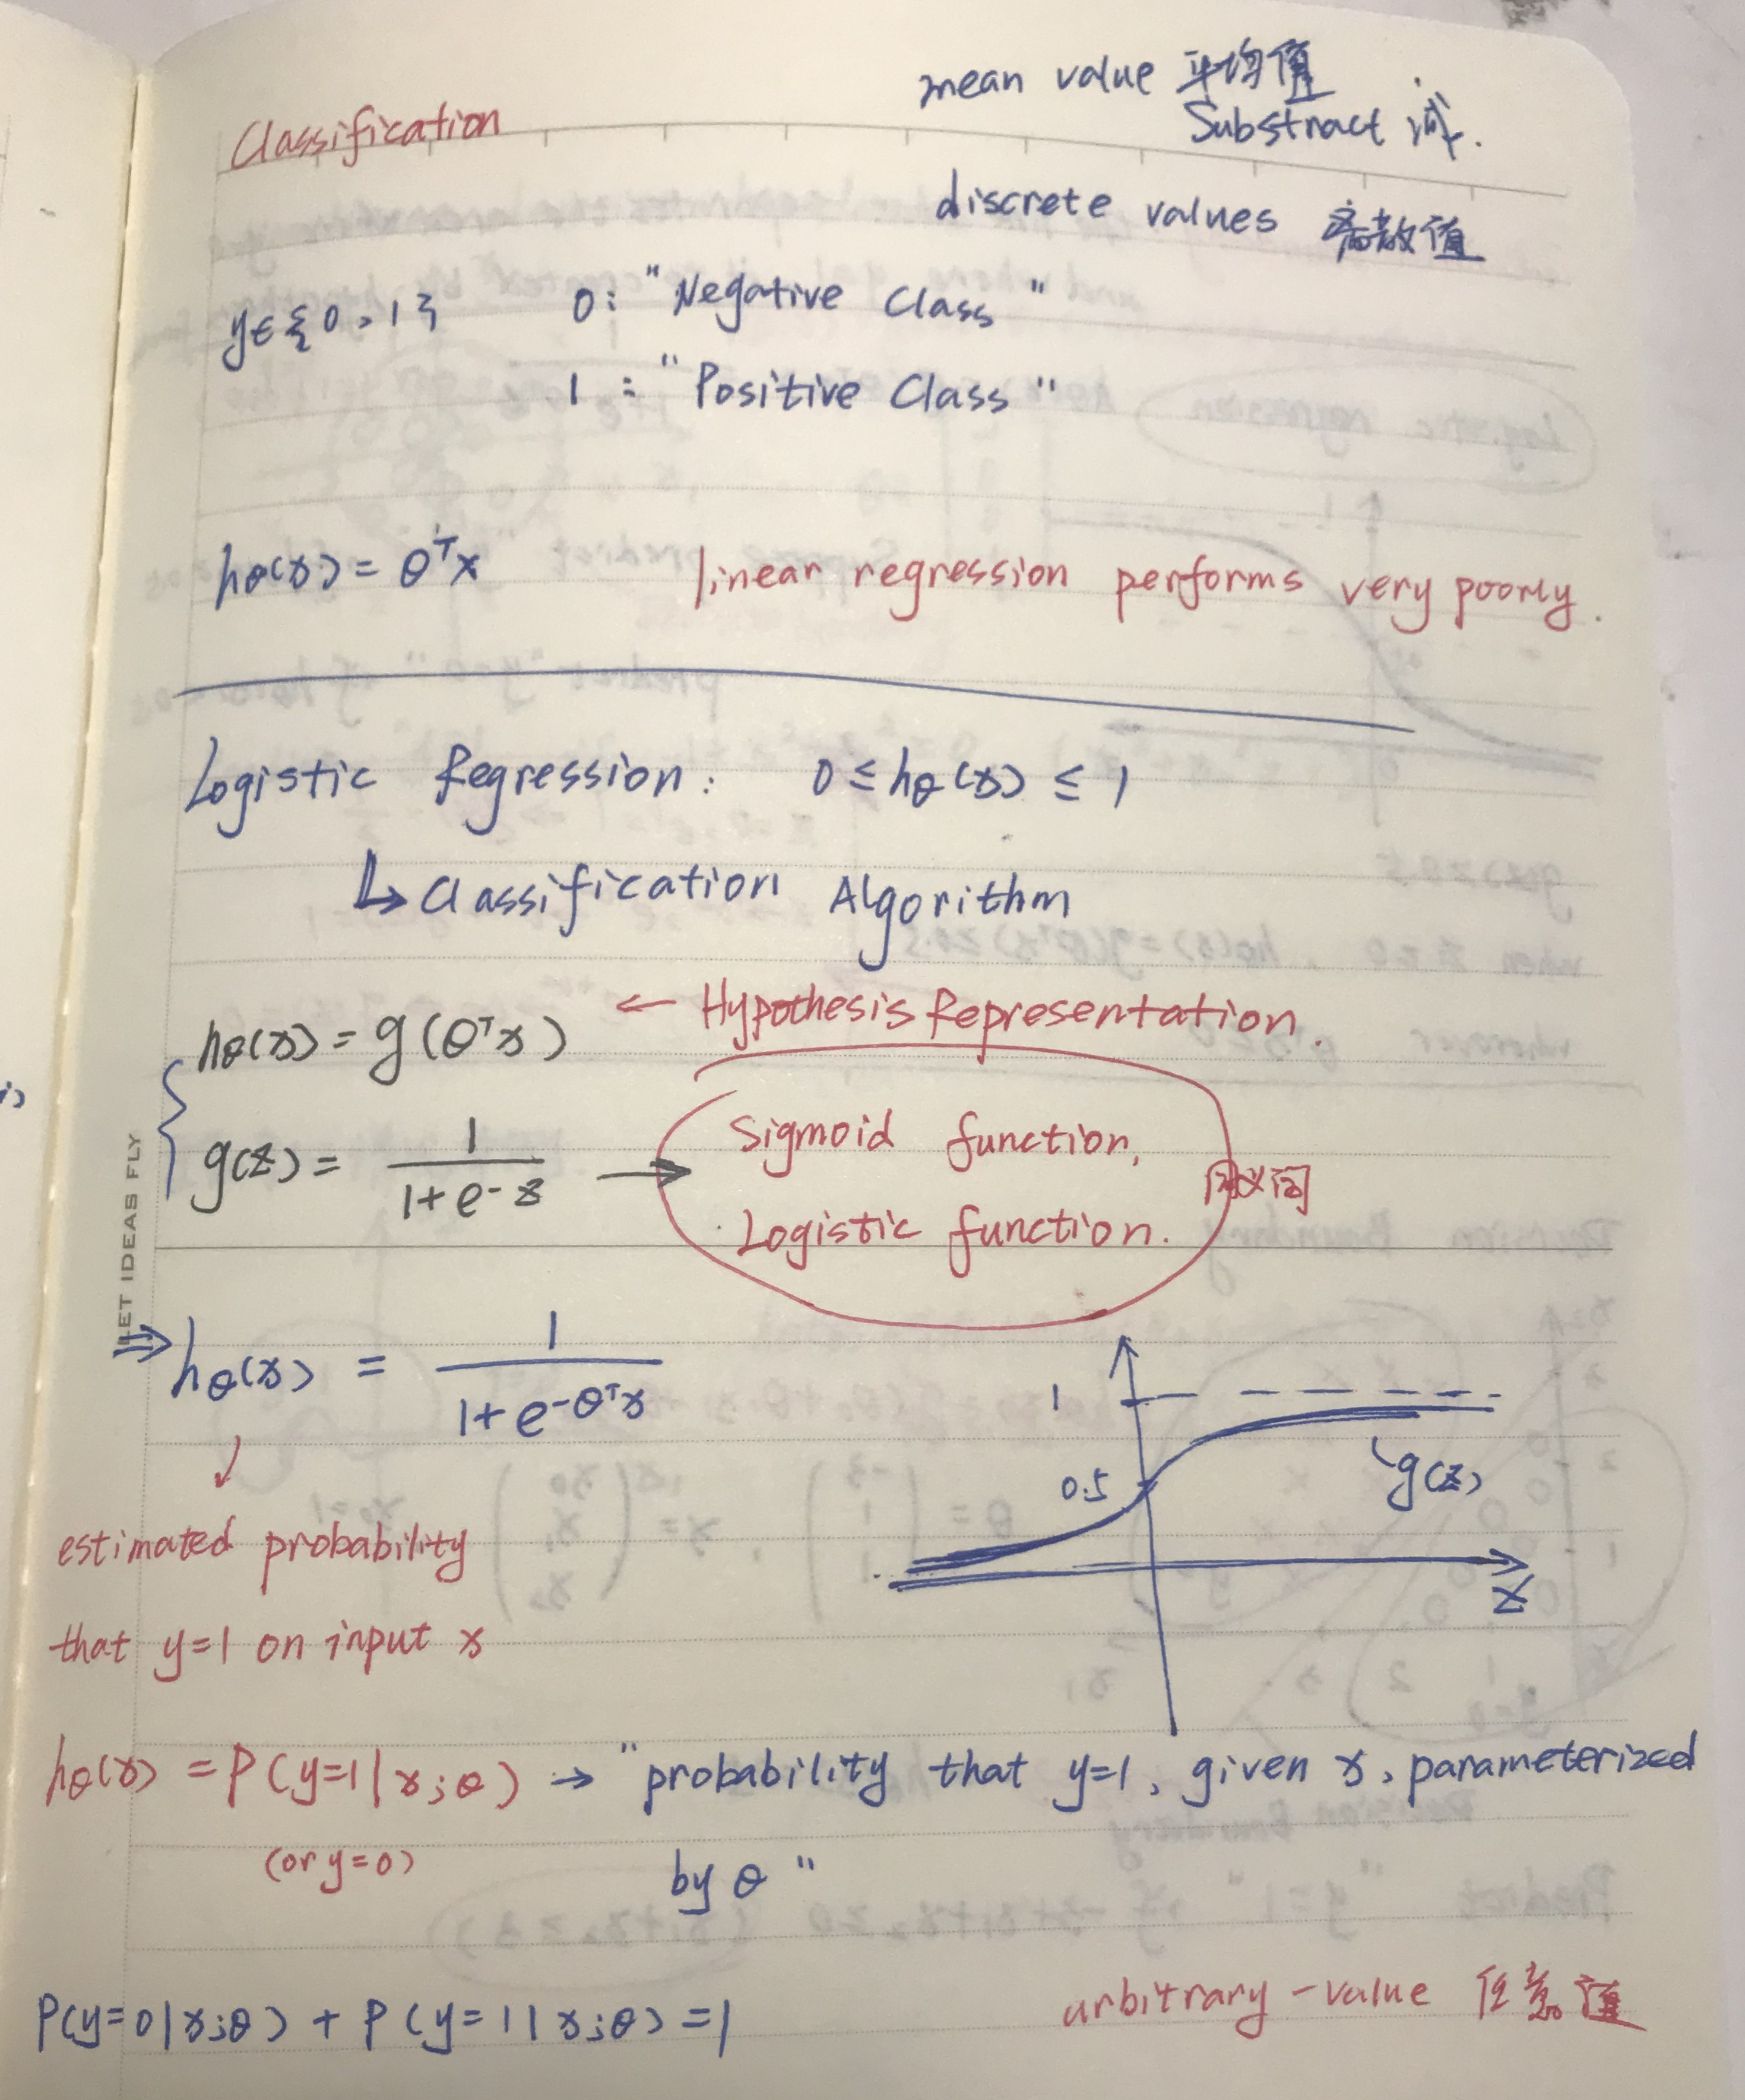 mean value 平均值
Classification
Substract 减.
discrete values 离散值
y∈{0,1} 0: "Negative Class"
1: "Positive Class"
hθ(x) = θᵀx linear regression performs very poorly.
Logistic Regression: 0 ≤ hθ(x) ≤ 1
↳ Classification Algorithm
hθ(x) = g(θᵀx) ← Hypothesis Representation.
g(z) = 1/(1+e-z) → Sigmoid function,
同义词
Logistic function.
LET IDEAS FLY
⇒ hθ(x) = 1/(1+e-θᵀx)
1
0.5
g(z)
z
estimated probability
that y=1 on input x
hθ(x) = P(y=1|x;θ) → "probability that y=1, given x, parameterized
(or y=0)
by θ"
P(y=0|x;θ) + P(y=1|x;θ) = 1
arbitrary-value 任意值